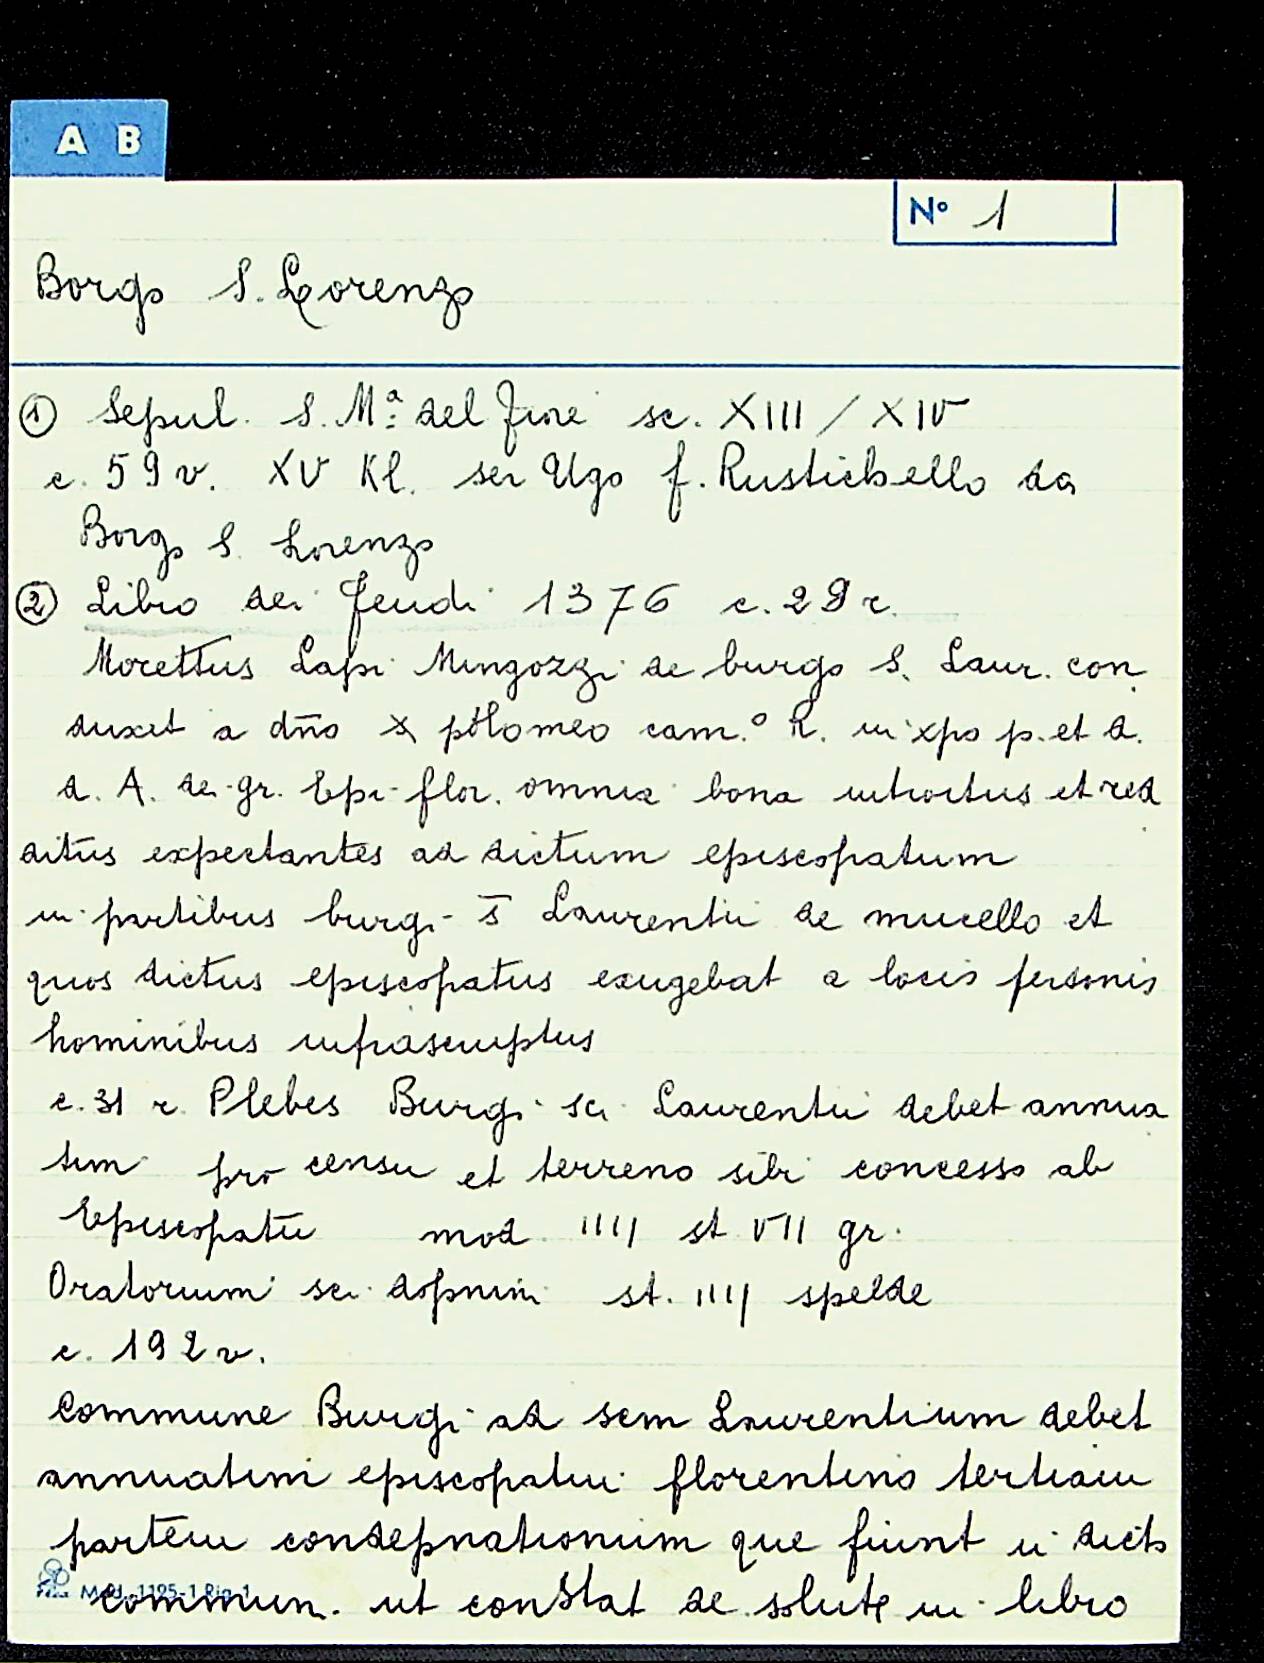 A B
N° 1
Borgo S. Lorenzo
① Sepul. S. Mª: del Fiore sc. XIII / XIV
c. 59 v. XV Kl. ser Ugo f. Rustichello da
Borgo S. Lorenzo
② Libro dei feudi 1376 c. 29 r.
Morettus Lapi Mingozzi de burgo S. Laur. con
duxit a dño ptolomeo cam.° R. in xpo p. et d.
d. A. dei gr. Epi flor. omnia bona introitus et red
ditus expectantes ad dictum episcopatum
in partibus burgi s̄ Laurentii de mucello et
quos dictus episcopatus exigebat a locis personis
hominibus infrascriptus
c. 31 r. Plebes Burgi sci Laurentii debet annua
tim pro censu et terreno sibi concesso ab
Episcopatu mod. IIIJ st. VII gr.
Oratorium sci dopnini st. IIIJ spelde
c. 192 v.
Commune Burgi ad scm Laurentium debet
annuatim episcopatui florentino tertiam
partem condepnationum que fiunt in dicto
Mod. 1195-1 Rig. 1
commun. ut constat de solute in libro